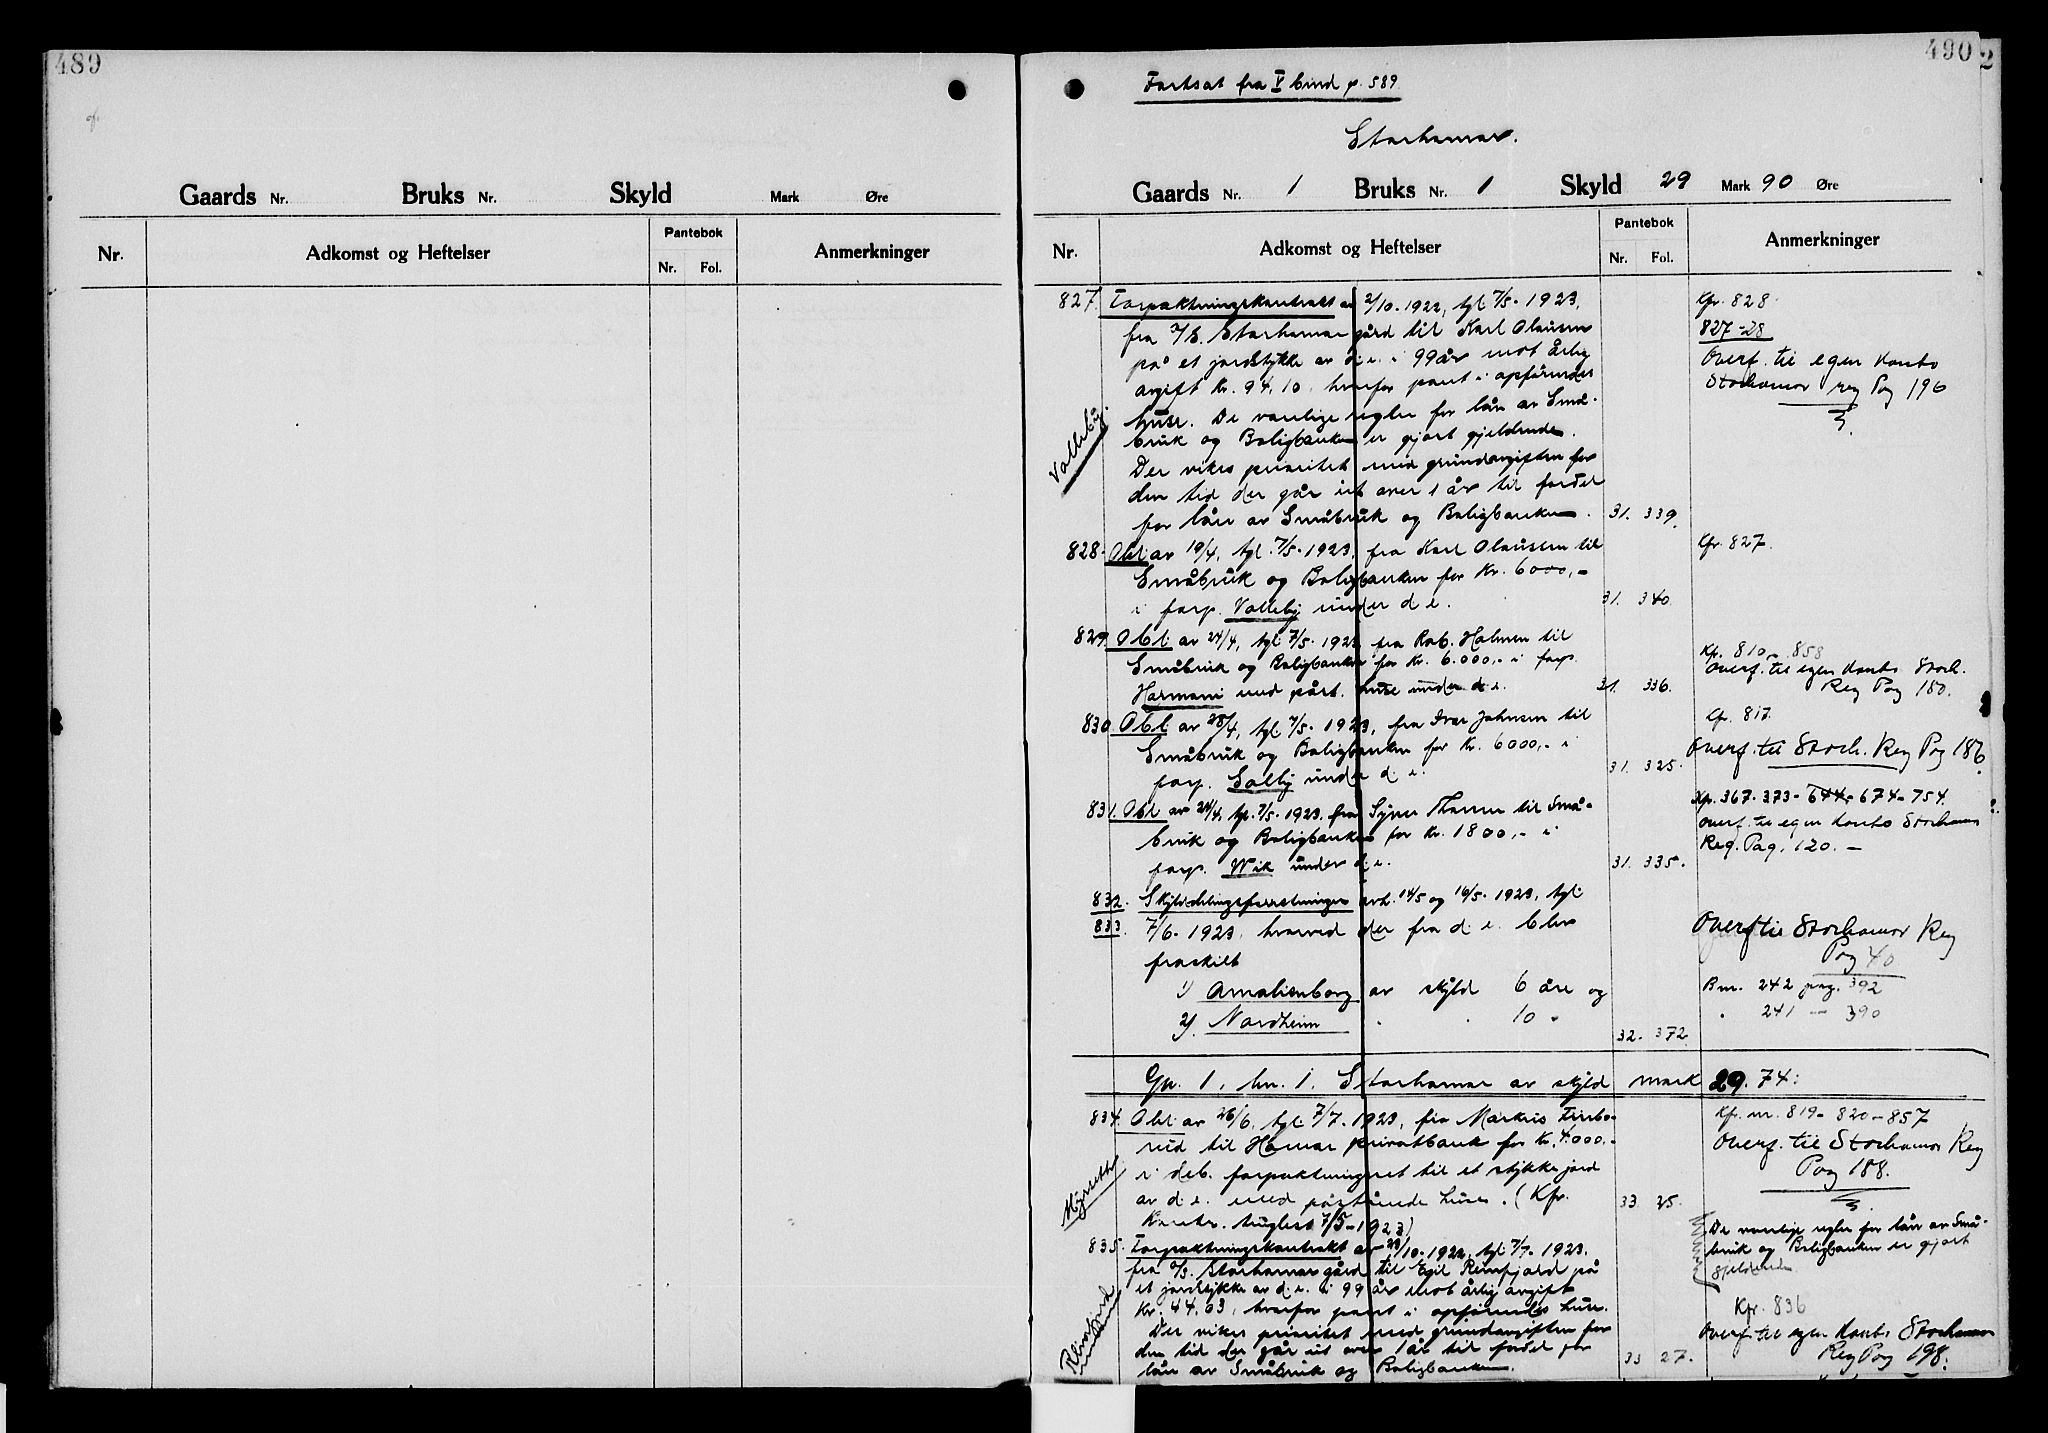 489
Gaards Nr. Bruks Nr. Skyld Mark Øre
Nr. Adkomst og Heftelser Pantebok Nr. Fol. Anmerkninger
490
2
Fortsat fra V bind p. 589
Storhamar.
Gaards Nr. 1 Bruks Nr. 1 Skyld 29 Mark 90 Øre
Nr. Adkomst og Heftelser Pantebok Nr. Fol. Anmerkninger
827. Forpaktningskontrakt av 2/10-1922, tgl. 7/5-1923, Kfr. 828
fra A/S. Storhamar gård til Karl Olausen 827-28
på et jordstykke av d.e. i 99 år mot årlig Overf. til egen Konto
avgift Kr. 94,10, hvorfor pant i opførendes Storhamar reg Pag 196
huse. De vanlige regler for lån av Små-
bruk og Boligbanken er gjort gjeldende.
Valleby.
Der vikes prioritet med grundavgiften for
den tid der går ut over 1 år til fordel
for lån av Småbruk og Boligbanken. 31. 339.
828. Obl. av 19/4, tgl. 7/5-1923, fra Karl Olausen til Kfr. 827.
Småbruk og Boligbanken for Kr. 6000,-
i forp. Valleby under d.e. 31. 340.
829. Obl. av 24/4, tgl. 7/5-1923, fra Rob. Holmen til
Småbruk og Boligbanken for Kr. 6.000,- i forp. Kfr. 810 - 858
Harmoni med påst. huse under d.e. 31. 336.
Overf. til egen Konto Storh.
Reg Pag 180.
830. Obl. av 28/4, tgl. 7/5-1923, fra Ivar Johnsen til Cfr. 817.
Småbruk og Boligbanken for Kr. 6000,- i Overf. til Storh. Reg Pag 186.
forp. Solby under d.e. 31. 325.
831. Obl. av 24/4, tgl. 7/5-1923, fra Syver Thoren til Små- Kfr. 367-373-644-674-754.
bruk og Boligbanken for Kr. 1800,- i Overf. til egen Konto Storhamar
forp. Wik under d.e. 31. 335. Reg. Pag. 120. -
832. Skylddelingsforretninger avh. 14/5 og 16/5-1923, tgl.
833. 7/6-1923, hvorved der fra d.e. blev Overf til Storhamar Reg
fraskilt Pag 40
1) Amalienborg av skyld 6 øre og Bnr. 242 pag. 392
2) Nordheim " " 10 " " 241 - 390
32. 372.
Gn. 1, bn. 1. Storhamar av skyld mark 29.74:
834. Obl. av 26/6, tgl. 7/7-1923, fra Markus Furbo- Kfr. nr. 819-820-857
rud til Hamar privatbank for Kr. 4.000,- Overf. til Storhamar Reg
i deb. forpaktningsret til et stykke jord Pag 188.
av d.e. med påstående huse. (Kfr. 33 25.
Kontr. tinglest 7/5-1923)
835. Forpaktningskontrakt av 23/10-1922, tgl. 7/7-1923.
De vanlige regler for lån av Små-
bruk og Boligbanken er gjort
gjeldende
fra A/S. Storhamar gård til Egil Remfjord på
et jordstykke av d.e. i 99 år mot årlig avgift
Kr. 44.03, hvorfor pant i opførendes huse. Kfr. 836
Der vikes prioritet med grundavgiften for Overf. til egen Konto Storhamar
den tid der går ut over 1 år til fordel for Reg Pag 198.
lån av Småbruk og Boligbanken. 33 27.